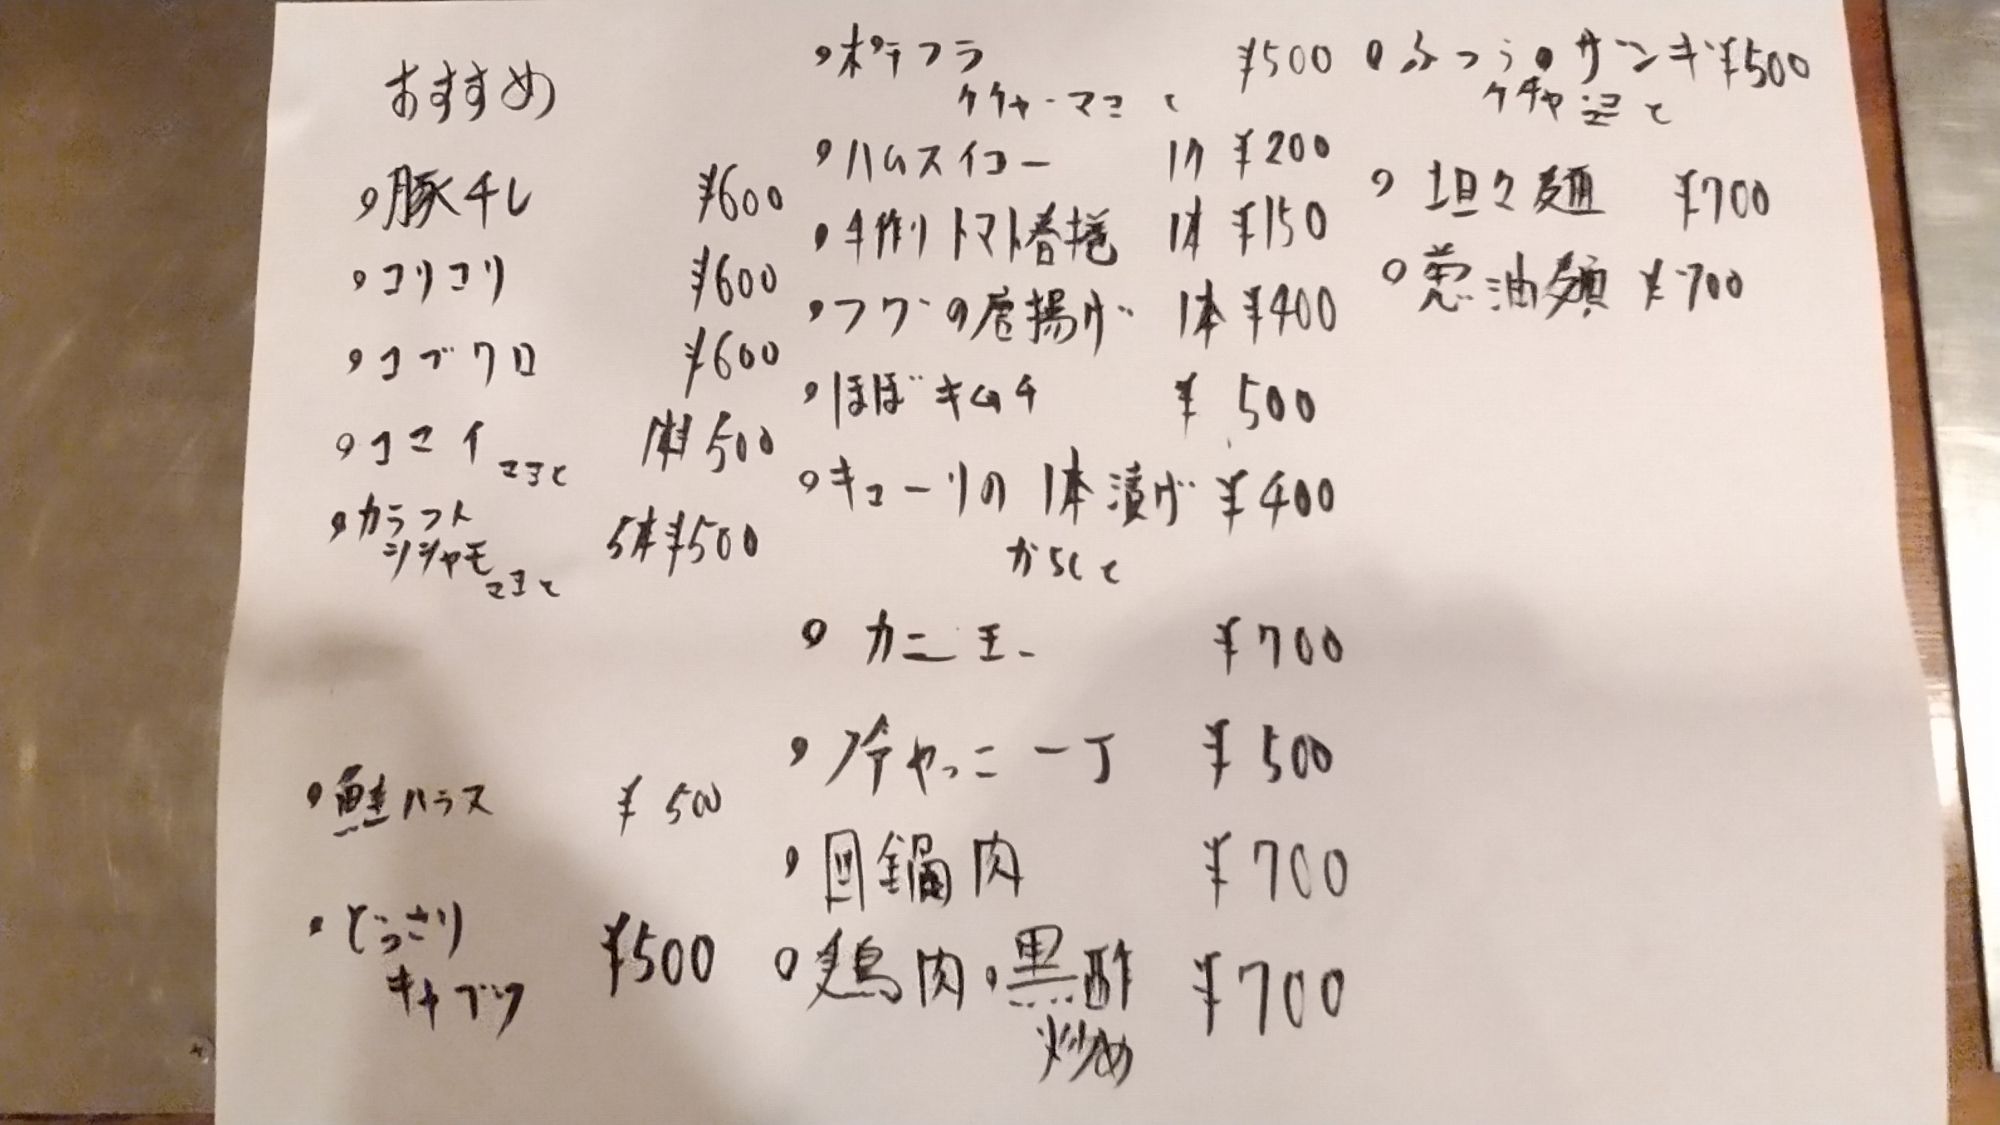 おすすめ
・豚串し ¥600
・コリコリ ¥600
・コブクロ ¥600
・コマイ 1本¥500
マヨと
・カラフト
シシャモ 5本¥500
マヨと
・鮭ハラス ¥500
・どっさり
キャベツ ¥500
・ポテフラ ¥500
ケチャ・マヨと
・ハムスイコー 1ケ ¥200
・手作りトマト春捲 1本 ¥150
・フグの唐揚げ 1本 ¥400
・ほぼキムチ ¥500
・キューリの1本漬け ¥400
からしと
・カニ玉 ¥700
・冷やっこ 一丁 ¥500
・回鍋肉 ¥700
・鶏肉・黒酢 ¥700
炒め
・ふつうのザンギ ¥500
ケチャマヨと
・坦々麺 ¥700
・葱油麺 ¥700